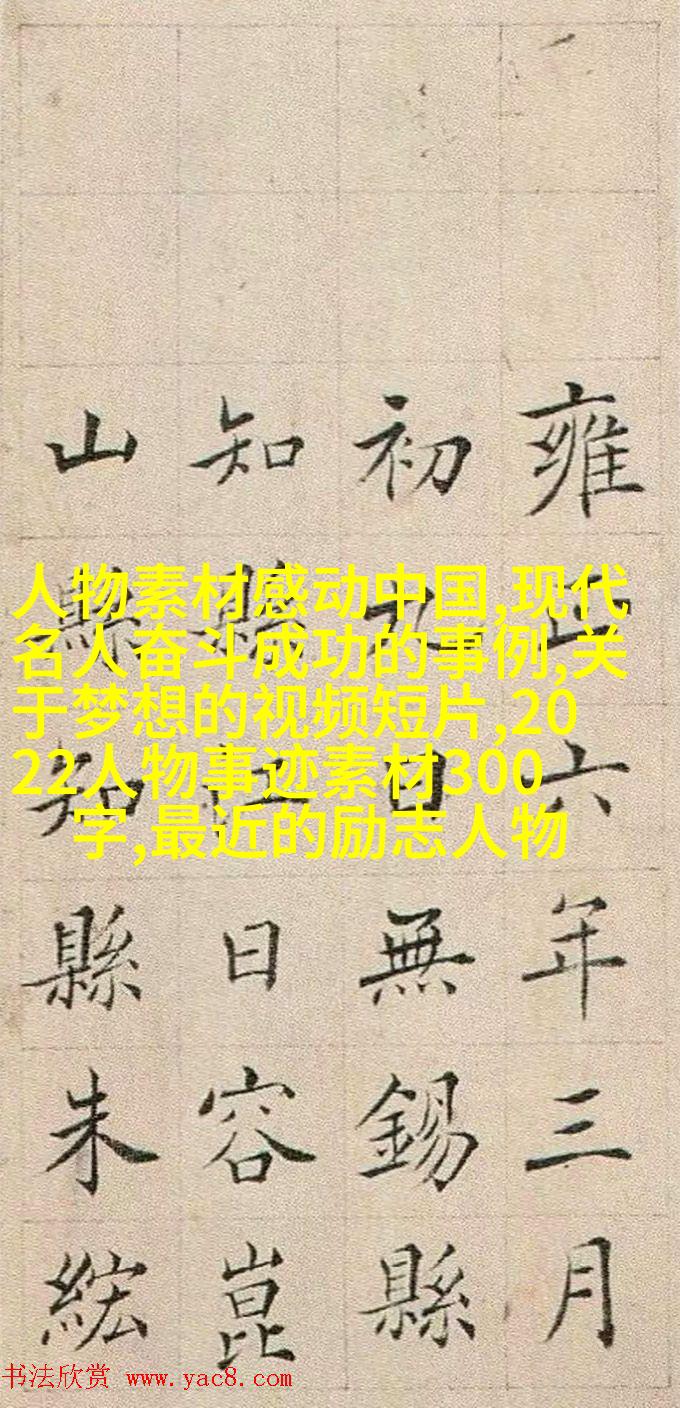 雍正六年三月
初九日無錫縣
知縣江日容崑
山縣知縣朱綋
人物素材感动中国,现代
名人奋斗成功的事例,关
于梦想的视频短片,20
22人物事迹素材300
字,最近的励志人物
书法欣赏 www.yac8.com